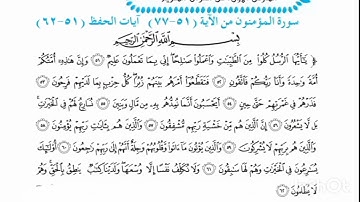 سورة المؤمنون من الآية (٥١-٧٧) آيات الحفظ (٥١-٦٢)
بِسْمِ اللَّهِ الرَّحْمَٰنِ الرَّحِيمِ
﴿ يَٰٓأَيُّهَا ٱلرُّسُلُ كُلُوا۟ مِنَ ٱلطَّيِّبَٰتِ وَٱعْمَلُوا۟ صَٰلِحًا إِنِّى بِمَا تَعْمَلُونَ عَلِيمٌ ٥١ وَإِنَّ هَٰذِهِۦٓ أُمَّتُكُمْ
أُمَّةً وَٰحِدَةً وَأَنَا۠ رَبُّكُمْ فَٱتَّقُونِ ٥٢ فَتَقَطَّعُوٓا۟ أَمْرَهُم بَيْنَهُمْ زُبُرًا كُلُّ حِزْبٍۭ بِمَا لَدَيْهِمْ فَرِحُونَ ٥٣
فَذَرْهُمْ فِى غَمْرَتِهِمْ حَتَّىٰ حِينٍ ٥٤ أَيَحْسَبُونَ أَنَّمَا نُمِدُّهُم بِهِۦ مِن مَّالٍ وَبَنِينَ ٥٥ نُسَارِعُ لَهُمْ فِى ٱلْخَيْرَٰتِ
بَل لَّا يَشْعُرُونَ ٥٦ إِنَّ ٱلَّذِينَ هُم مِّنْ خَشْيَةِ رَبِّهِم مُّشْفِقُونَ ٥٧ وَٱلَّذِينَ هُم بِـَٔايَٰتِ رَبِّهِمْ يُؤْمِنُونَ ٥٨
وَٱلَّذِينَ هُم بِرَبِّهِمْ لَا يُشْرِكُونَ ٥٩ وَٱلَّذِينَ يُؤْتُونَ مَآ ءَاتَوا۟ وَّقُلُوبُهُمْ وَجِلَةٌ أَنَّهُمْ إِلَىٰ رَبِّهِمْ رَٰجِعُونَ ٦٠ أُو۟لَٰٓئِكَ
يُسَٰرِعُونَ فِى ٱلْخَيْرَٰتِ وَهُمْ لَهَا سَٰبِقُونَ ٦١ وَلَا نُكَلِّفُ نَفْسًا إِلَّا وُسْعَهَا وَلَدَيْنَا كِتَٰبٌ يَنطِقُ بِٱلْحَقِّ وَهُمْ
لَا يُظْلَمُونَ ٦٢